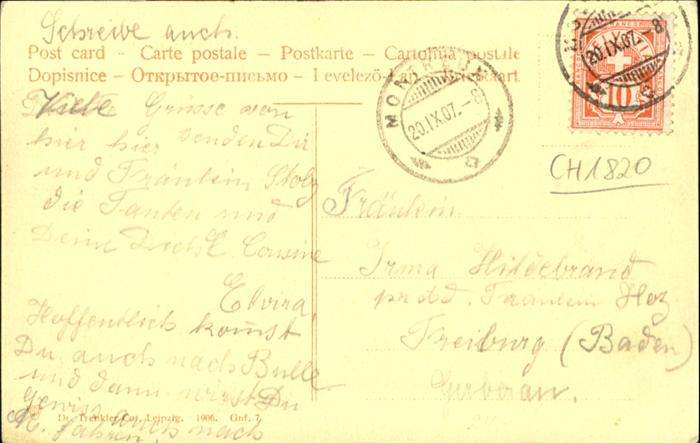 Schreibe auch.
Post card - Carte postale - Postkarte - Cartolina postale
Dopisnice - Открытое-письмо - Levelező-Lap
Viele Grüsse von
hier hier senden Dir
und Fräulein Stolz
die Tanten und
Deine Cousine
Elvira.
Hoffentlich komst
Du auch nach Bulle
und dann wirst Du
gewiss auch nach
M. fahren.
Dr. Trenkler Co., Leipzig. 1906. Gnf. 7.
MON
20.IX.07.-8
20.IX.07.-8
10
CH1820
Fräulein
Irma Hildebrand
Fräulein
Freiburg (Baden)